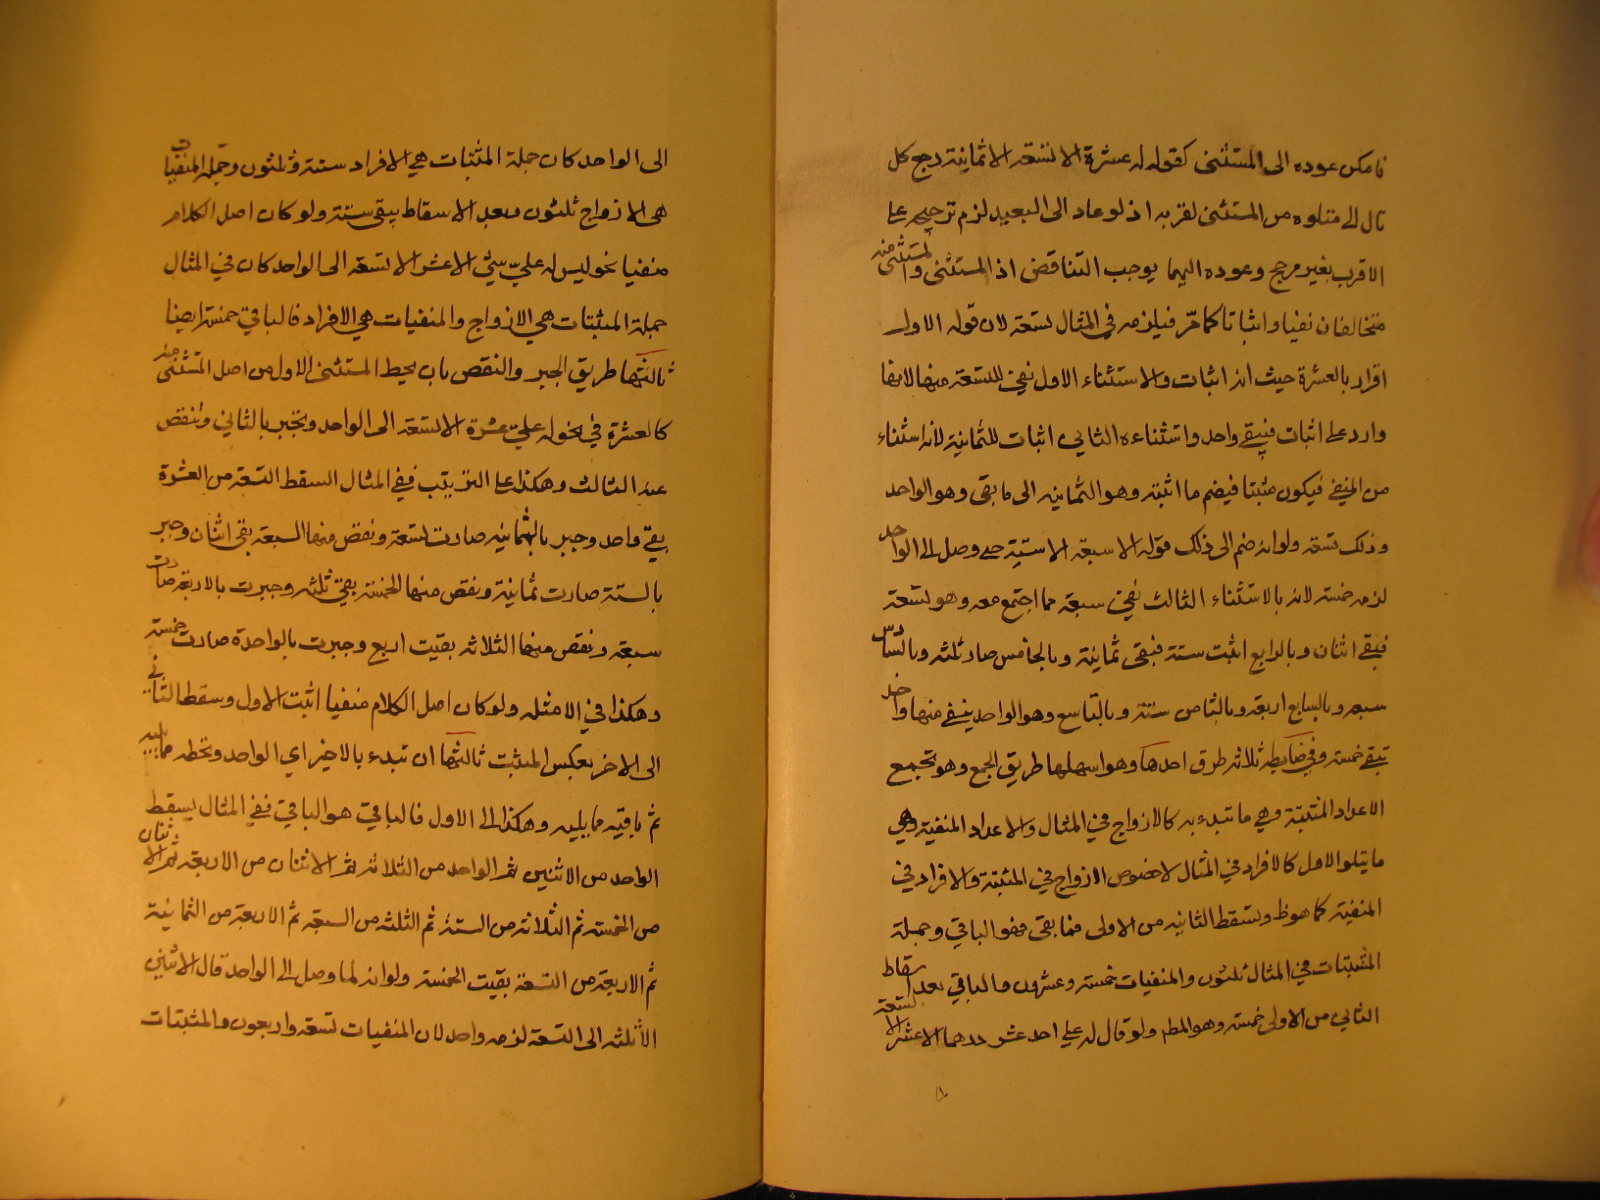 فامكن عوده الى المستثنى كقوله له عشرة الا تسعة الا ثمانية رجع كل
تال لى متلوه من المستثنى لقربه اذ لو عاد الى البعيد لزم ترجيحه على
الاقرب بغير مرجح وعوده اليهما يوجب التناقض اذ المستثنى والمستثنى منه
متخالفان نفيا واثباتا كما مر فيلزمه في المثال تسعة لان قوله الاول
اقرار بالعشرة حيث انه اثبات والاستثناء الاول نفى للتسعة منها لانها
وارد على اثبات فيبقى واحد واستثناءه الثاني اثبات للثمانية لانه استثناء
من المنفي فيكون مثبتا فيضم ما اثبته وهو الثمانية الى ما بقى وهو الواحد
وذلك تسعة ولو انه ضم الى ذلك قوله الا سبعة الا ستة حتى وصل الى الواحد
لزمه خمسة لانه بالاستثناء الثالث نفى سبعة مما اجتمع معه وهو تسعة
فبقى اثنان وبالرابع اثبت ستة فبقى ثمانية وبالخامس صار ثلثه وبالسادس
سبعه وبالسابع اربعه وبالثامن ستة وبالتاسع وهو الواحد ينفى منها واحد
تبقى خمسة وفي ضابطه ثلاثه طرق احدها وهو اسهلها طريق الجمع وهو تجمع
الاعداد المثبتة وهي ما تبدء به كالازواج في المثال والاعداد المنفية وهي
ما يتلوا الاول كالافراد في المثال لا خصوص الازواج في المثبتة والافراد في
المنفية كما هو ظ وتسقط الثانيه من الاولى فما بقى فهو الباقي وجملة
المثبتات في المثال ثلثون والمنفيات خمسة وعشرون والباقي بعد اسقاط
الثاني من الاولى خمسة وهو المط ولو قال له على احد عشر درهما الا عشرة الا تسعة
الى الواحد كان جملة المثبتات هي الافراد ستة وثلثون وجمله المنفيات
هى الازواج ثلثون وبعد الاسقاط يبقى ستة ولو كان اصل الكلام
منفيا نحو ليس له علي شئ الا عشر الا تسعة الى الواحد كان في المثال
جملة المثبتات هي الازواج والمنفيات هي الافراد فالباقي خمسة ايضا
ثالثتها طريق الجبر والنقص بان يحط المستثنى الاول من اصل المستثنى منه
كالعشرة في نحو له علي عشرة الا تسعة الى الواحد وتجبر بالثاني وتنقص
عنه الثالث وهكذا على الترتيب ففى المثال اسقط التسعة من العشرة
بقي واحد وجبر بالثمانيه صارت تسعة ونقص منها السبعة بقى اثنان وجبر
بالستة صارت ثمانية ونقص منها الخمسة بقى ثلثه وجبرت بالاربعة صارت
سبعة ونقص منها الثلاثه بقيت اربع وجبرت بالواحدة صارت خمسة
وهكذا في الامثله ولو كان اصل الكلام منفيا اثبت الاول وسقط الثاني
الى الاخر بعكس المثبت ثالثتها ان تبدء بالاخير اي الواحد وتحطه مما يليه
ثم باقيه مما يليه وهكذا الى الاول فالباقي هو الباقي ففي المثال يسقط
الواحد من الاثنين ثم الواحد من الثلاثه ثم الاثنان من الاربعه ثم الاثنان
من الخمسة ثم الثلاثه من الستة ثم الثلثه من السبعة ثم الاربعة من الثمانية
ثم الاربعة من التسعة بقيت الخمسة ولو انه لما وصل الى الواحد قال الا اثنين
الا ثلثه الى التسعة لزمه واحد لان المنفيات تسعة واربعون والمثبتات